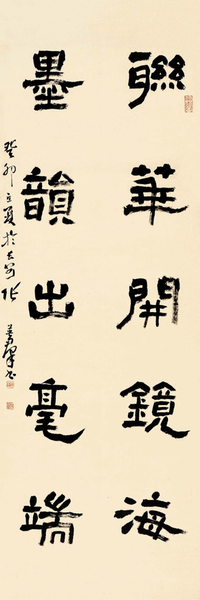 聯華開鏡海
墨韻出毫端
癸卯立夏於
書